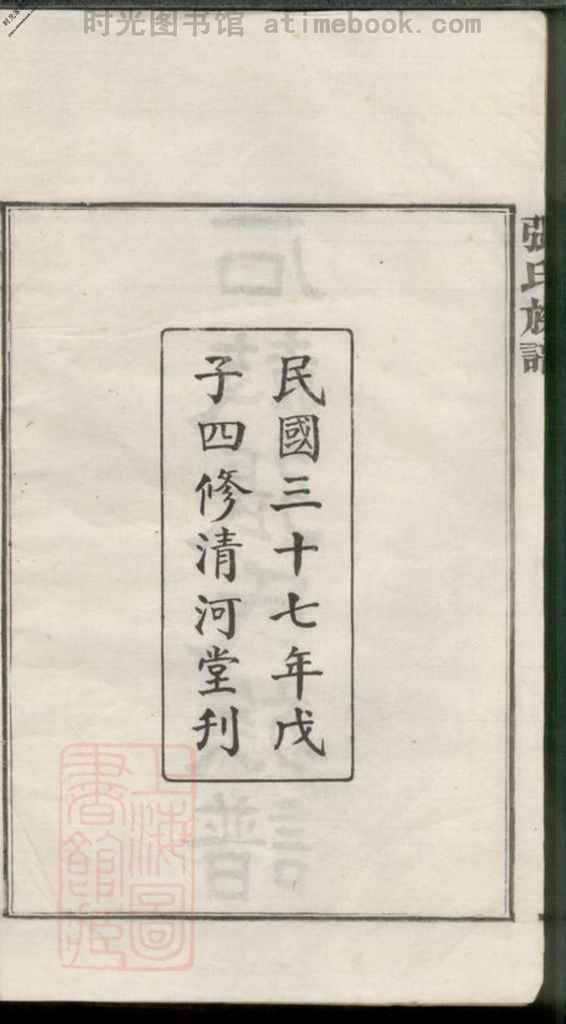 时光图书馆 atimebook.com
張氏族譜
民國三十七年戊
子四修清河堂刊
上海圖
書館藏